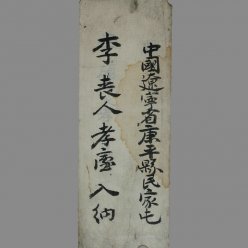 中國遼寧省康平縣民家屯
李喪人孝廬入納